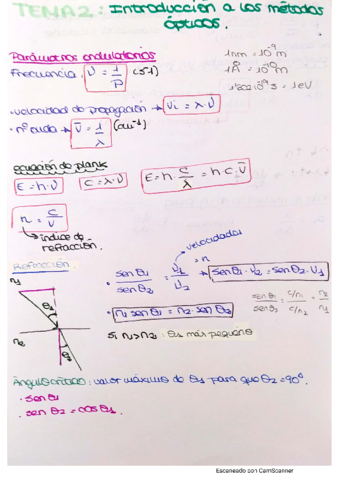 TEMA 2: Introducción a los métodos
ópticos.
Parámetros ondulatorios
Frecuencia, ν = 1/P (s-1)
1nm = 10^-9 m
1Å = 10^-10 m
·velocidad de propagación → Vi = λ·ν
·nº onda → ν̄ = 1/λ (cm^-1)
ecuación de plank
E = h·ν
C = λ·ν
E = h · C/λ = h·C·ν̄
n = C/V
↳ índice de refracción.
Refracción.
velocidades
n1
θ1
n2
θ2
· sen θ1 / sen θ2 = V1 / V2 → sen θ1 · V2 = sen θ2 · V1
· n1 sen θ1 = n2 · sen θ2
sen θ1 / sen θ2 = c/n1 / c/n2 = n2 / n1
Si n1 > n2: θ1 más pequeño
Ángulo crítico: valor máximo de θ1 para que θ2 = 90º.
· sen θ1
· sen θ2 = cos θ1
Escaneado con CamScanner